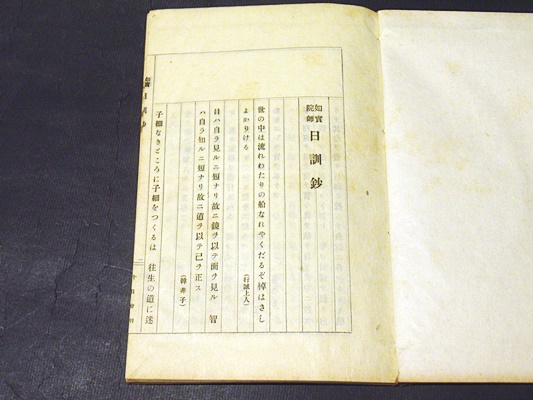 如實院師 日訓鈔
世の中は流れわたりの船なれやくだるぞ棹はさし
よかりける
(行誡上人)
目ハ自ラ見ルニ短ナリ故ニ鏡ヲ以テ面ヲ見ル 智
ハ自ラ知ルニ短ナリ故ニ道ヲ以テ己ヲ正ス
(韓非子)
子細なきところに子細をつくるは 往生の道に迷